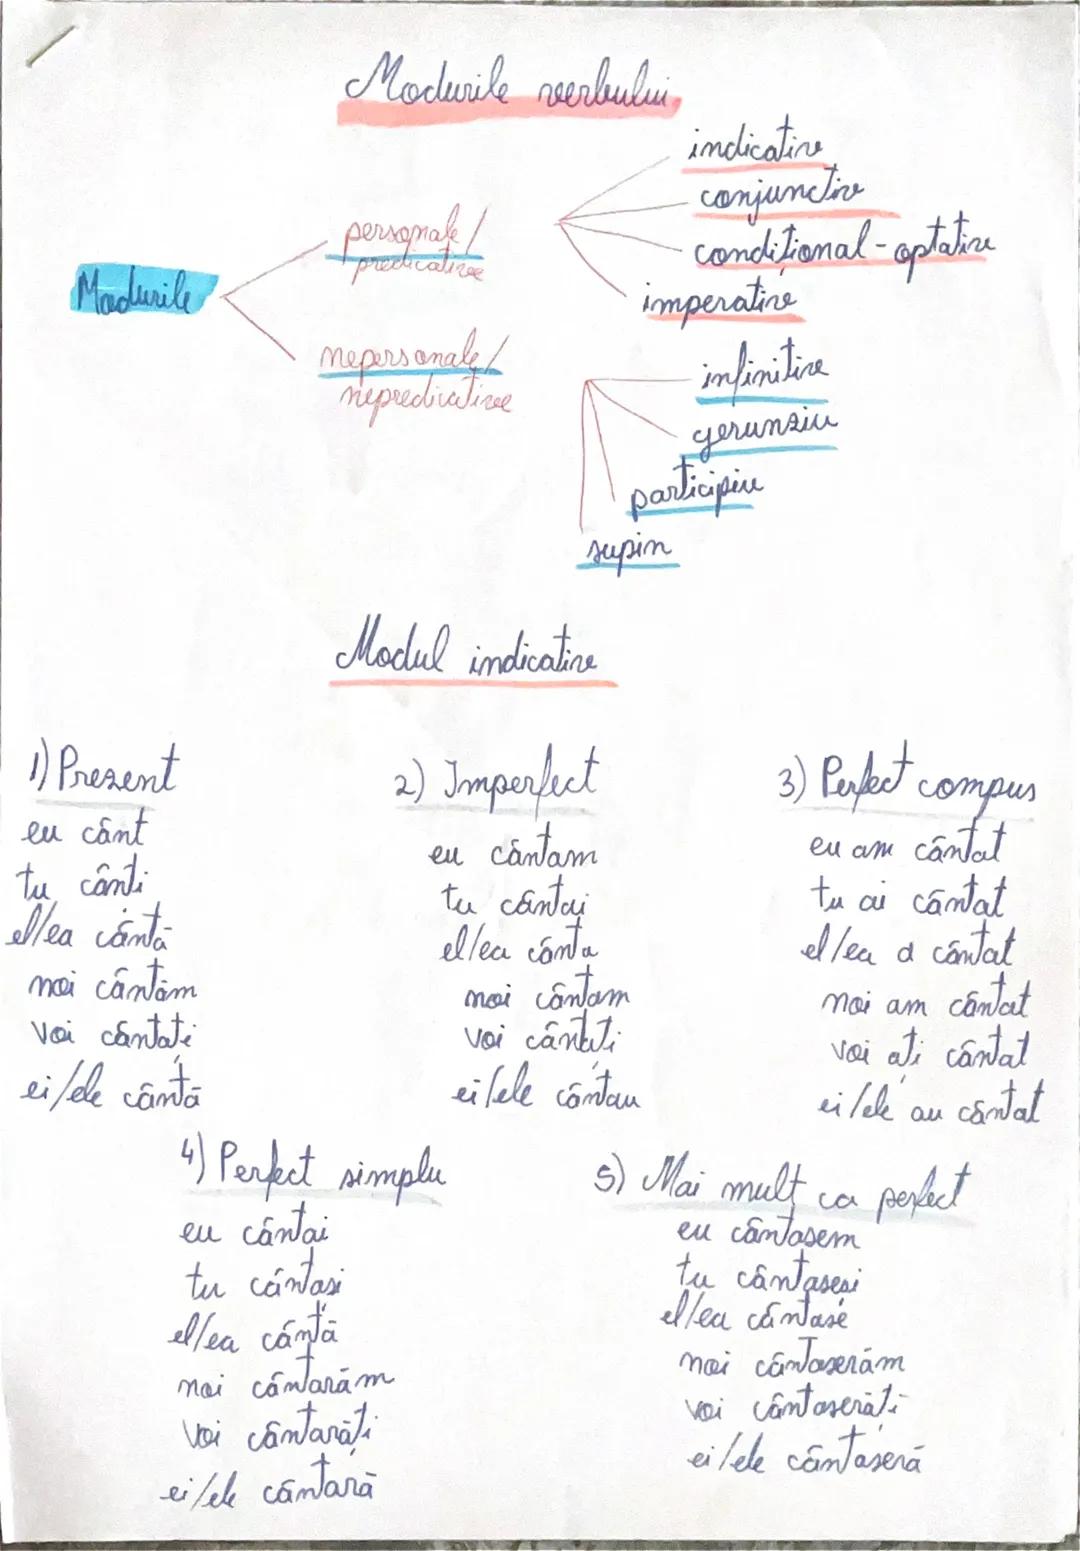 Modurile verbului
Modurile
personale/
predicative
indicativ
conjunctiv
condițional-optativ
imperativ
nepersonale/
nepredicative
infinitiv
gerunziu
participiu
supin
Modul indicativ
1) Prezent
eu cânt
tu cânți
el/ea cântă
noi cântăm
voi cântați
ei/ele cântă
2) Imperfect
eu cântam
tu cântai
el/ea cânta
noi cântam
voi cântați
ei/ele cântau
3) Perfect compus
eu am cântat
tu ai cântat
el/ea a cântat
noi am cântat
voi ați cântat
ei/ele au cântat
4) Perfect simplu
eu cântai
tu cântași
el/ea cântă
noi cântarăm
voi cântarăți
ei/ele cântară
5) Mai mult ca perfect
eu cântasem
tu cântaseși
el/ea cântase
noi cântaserăm
voi cântaserăți
ei/ele cântaseră